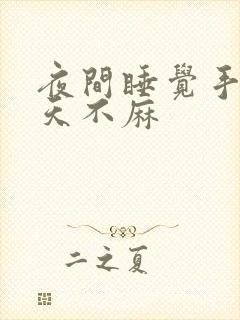 夜間睡覺手
天不麻
二之夏